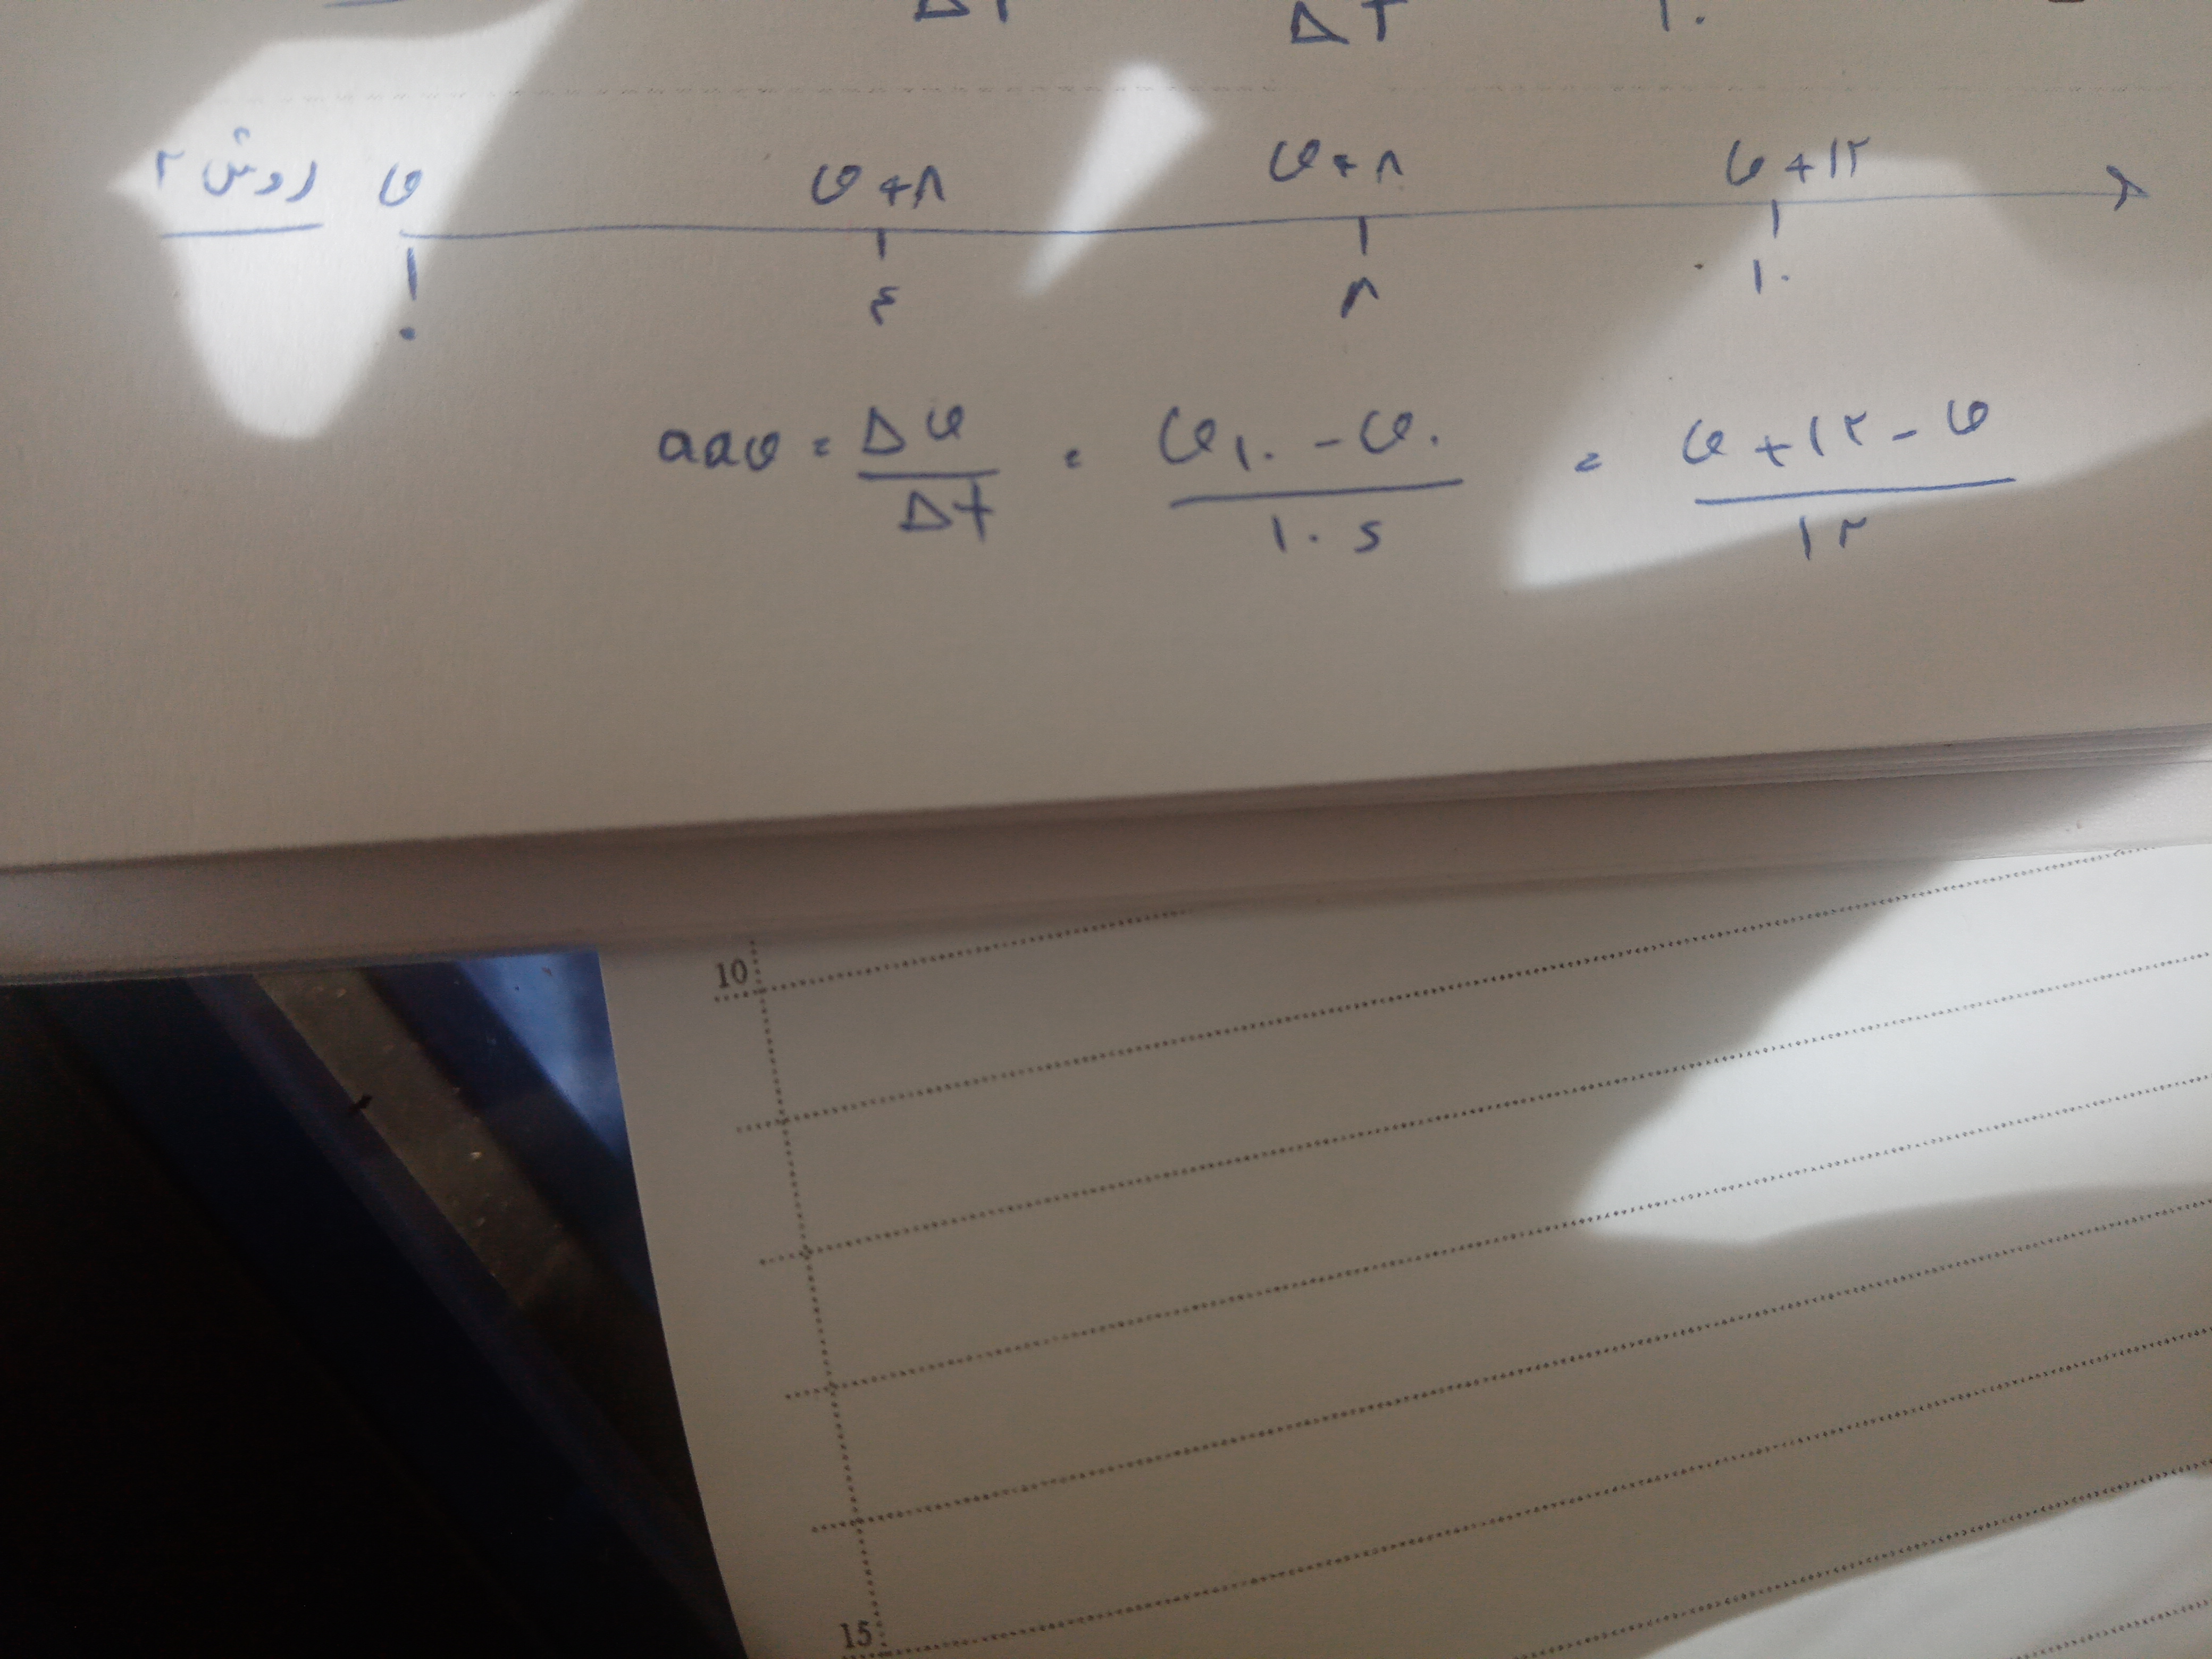 ΔT ΔT ۱۰
روش ۲ v v+۸ v+۸ v+۱۲
۰ ۴ ۸ ۱۰
aav = Δv / Δt = v۱۰ - v۰ / ۱۰ s = v+۱۲-v / ۱۲
10
15